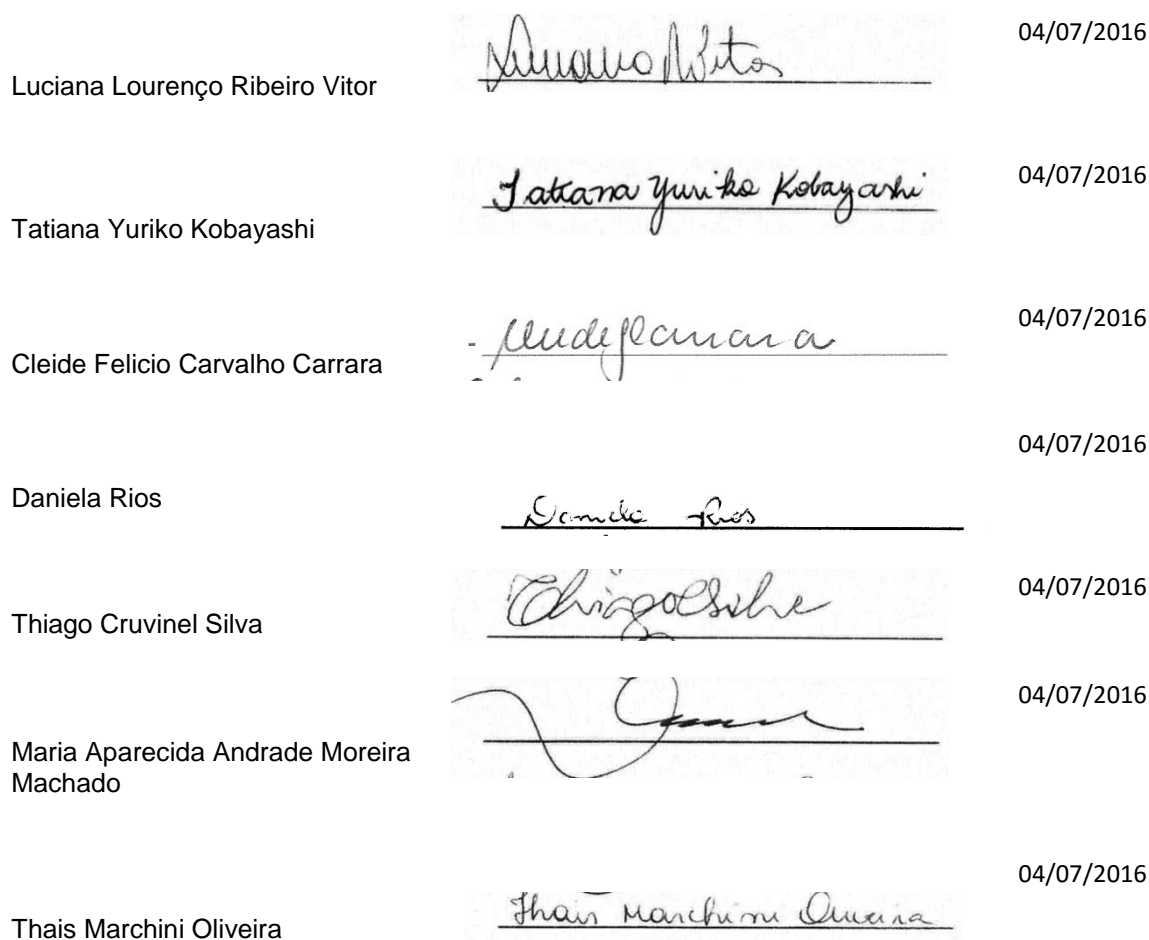 04/07/2016
Luciana Vitor
Luciana Lourenço Ribeiro Vitor
04/07/2016
Tatiana Yuriko Kobayashi
Tatiana Yuriko Kobayashi
04/07/2016
Cleide Felicio Carvalho Carrara
04/07/2016
Daniela Rios
Daniela Rios
04/07/2016
ThiagoCSilva
Thiago Cruvinel Silva
04/07/2016
Maria Aparecida Andrade Moreira
Machado
04/07/2016
Thais Marchini Oliveira
Thais Marchini Oliveira